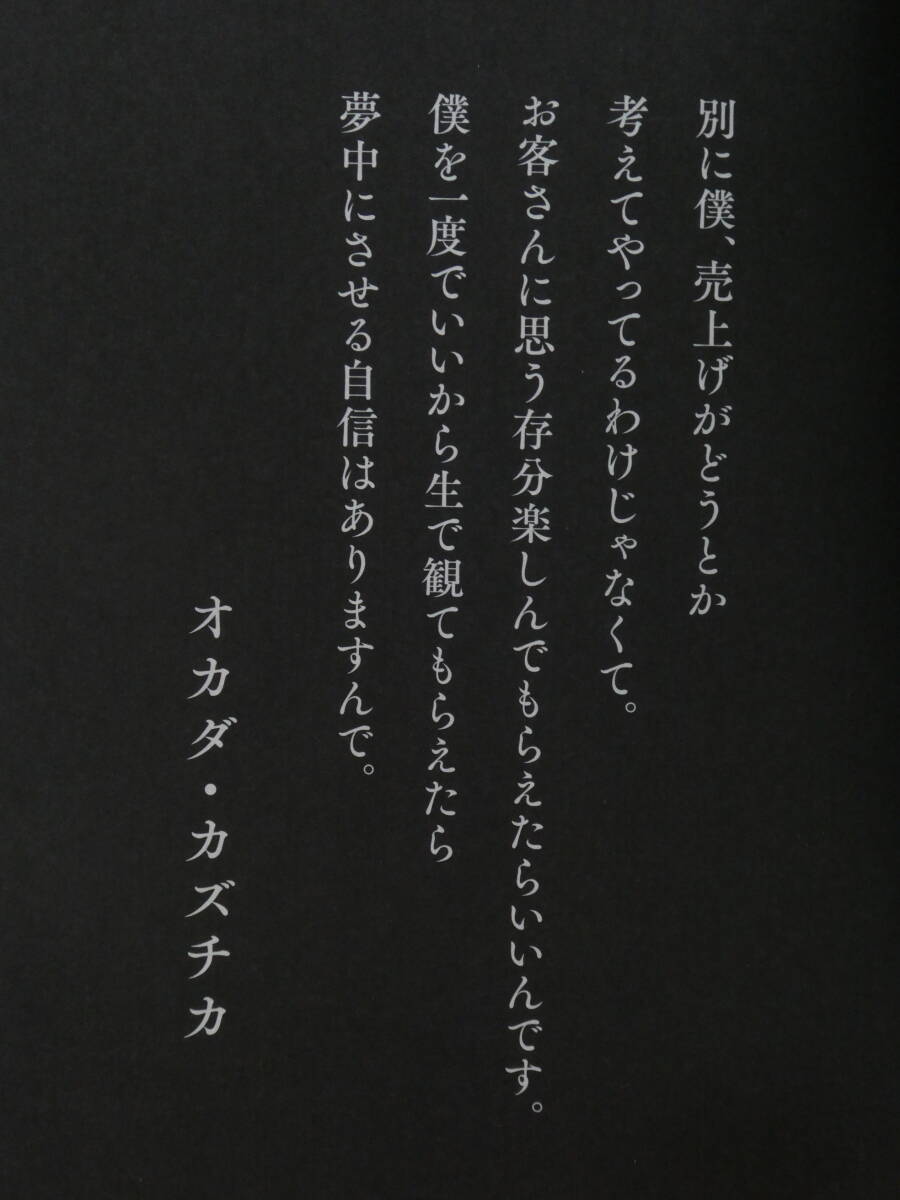 別に僕、売上げがどうとか
考えてやってるわけじゃなくて。
お客さんに思う存分楽しんでもらえたらいいんです。
僕を一度でいいから生で観てもらえたら
夢中にさせる自信はありますんで。
オカダ・カズチカ